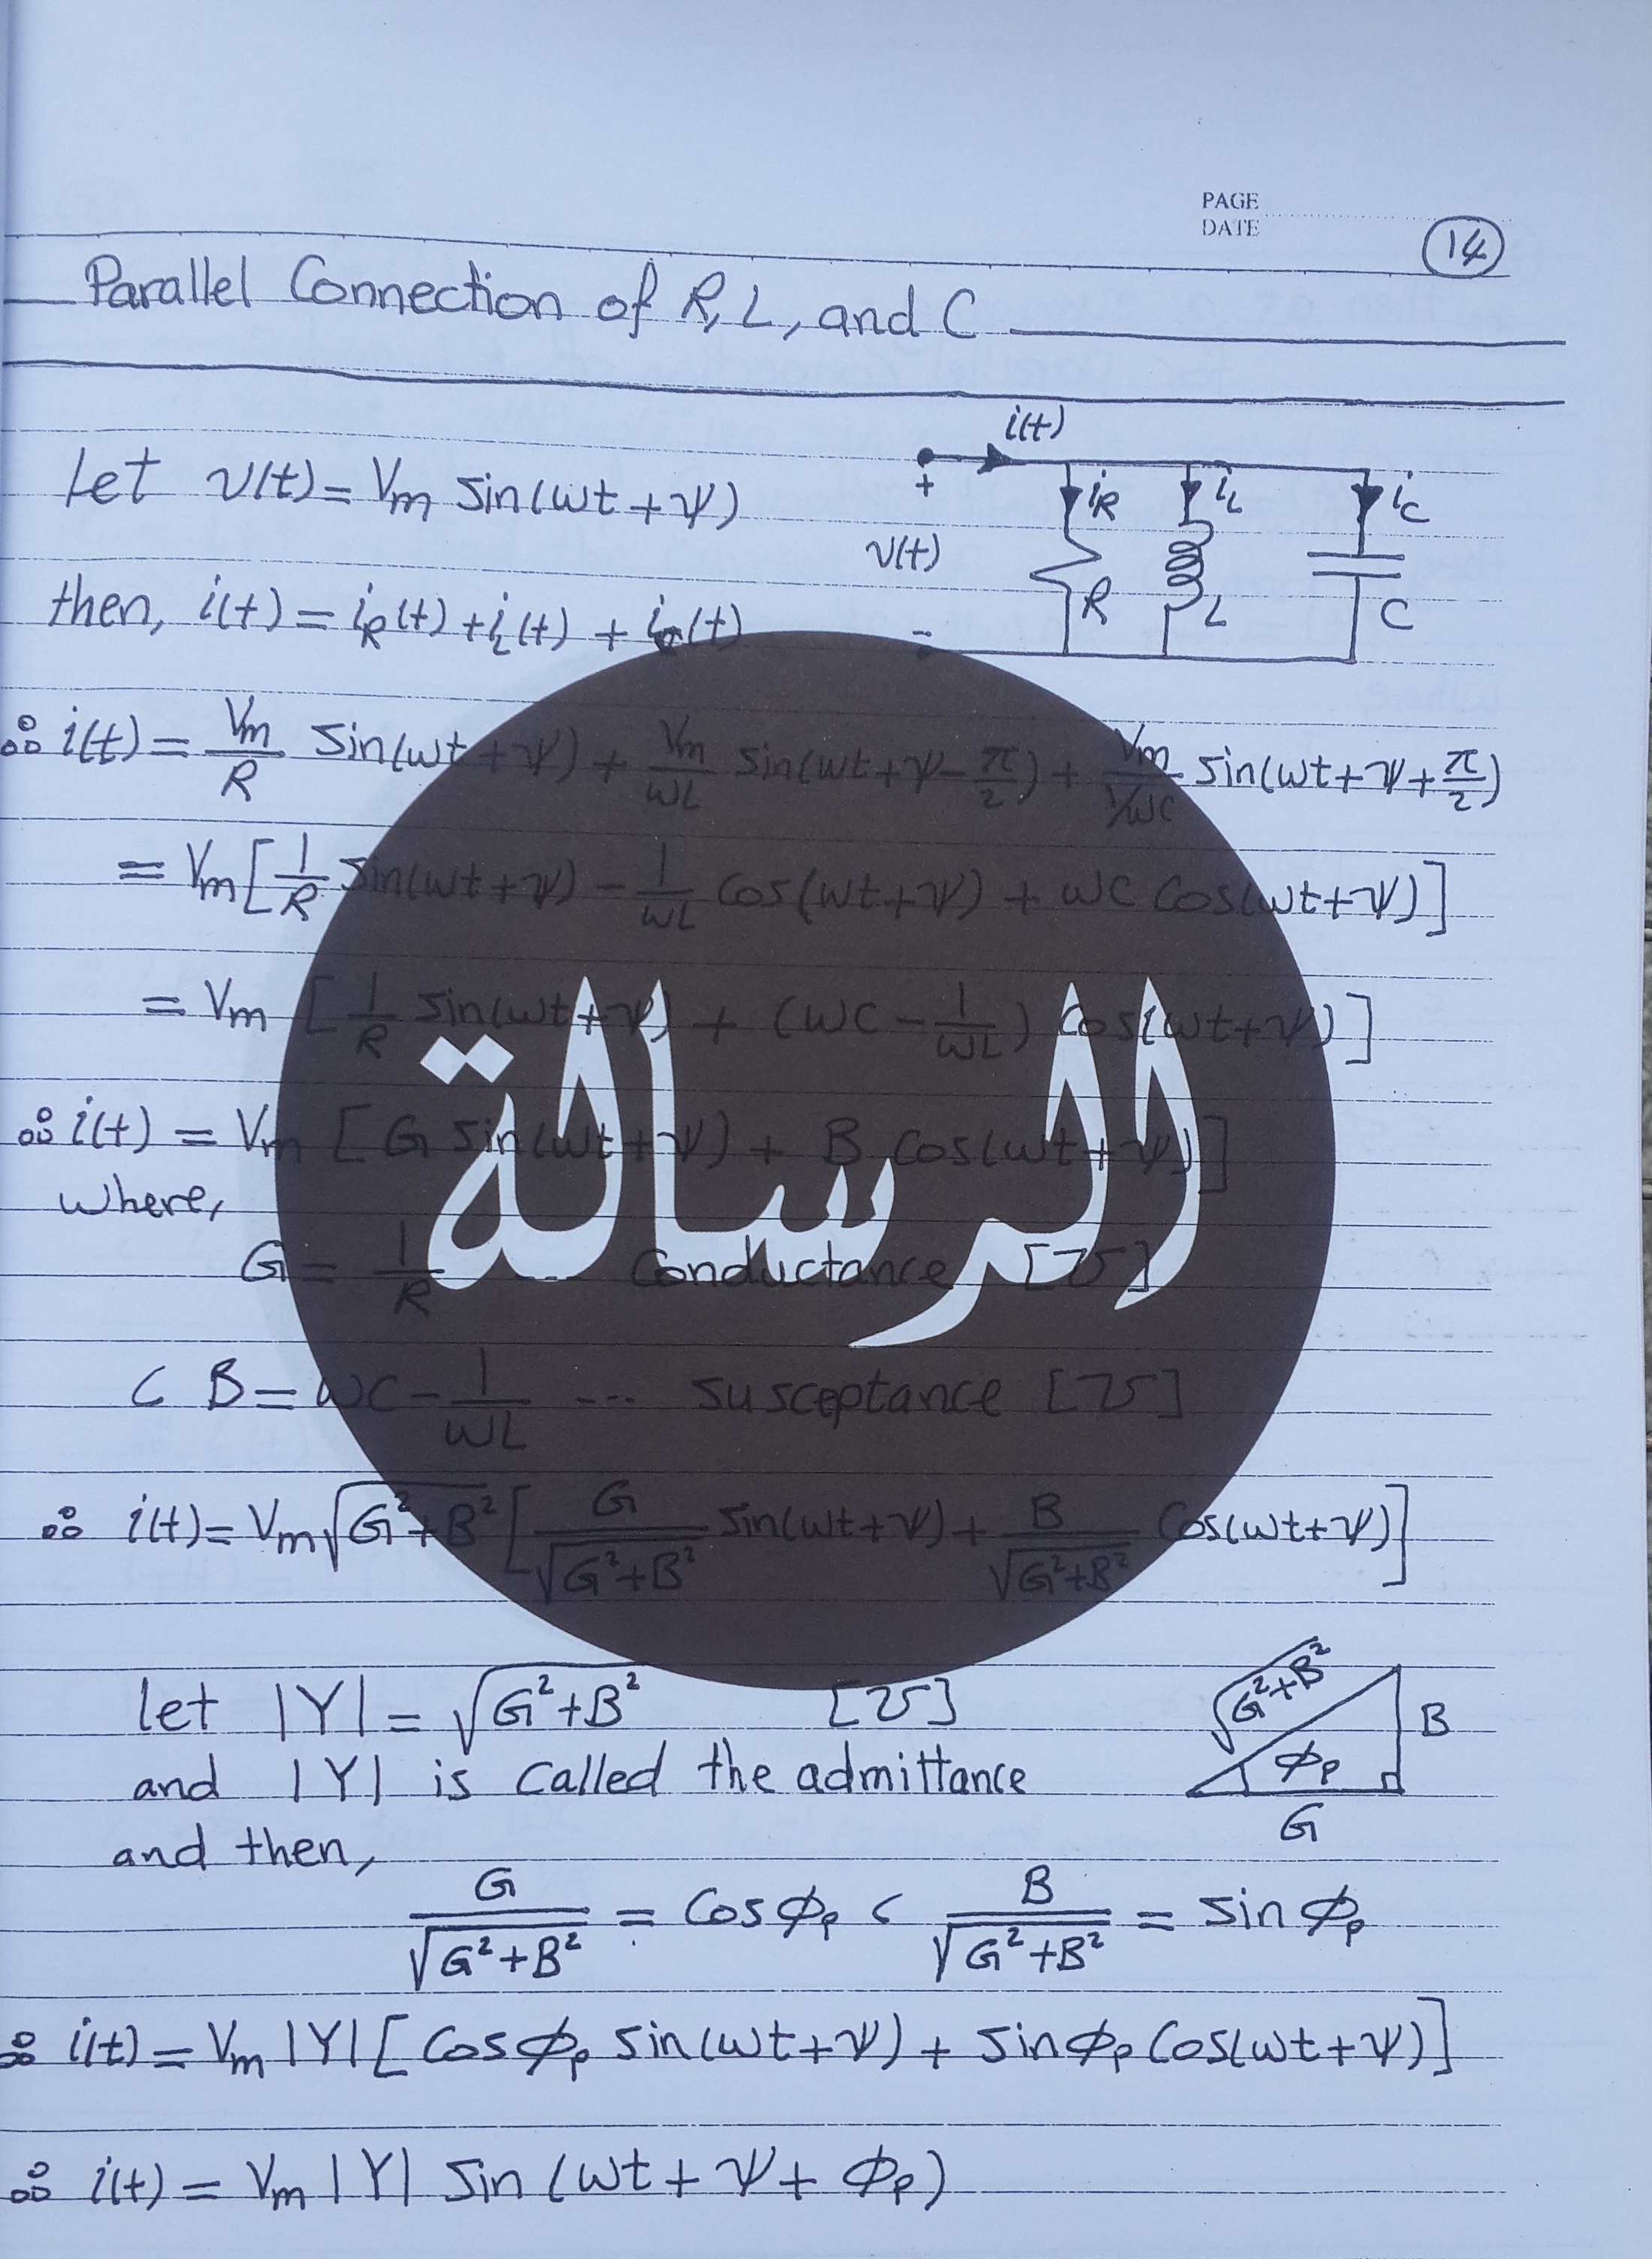 PAGE
DATE
14
Parallel Connection of R, L, and C
Let v(t) = Vm sin(ωt + ψ)
i(t)
+ iR iL iC
v(t)
R L C
-
then, i(t) = iR(t) + iL(t) + iC(t)
∴ i(t) = Vm/R sin(ωt + ψ) + Vm/ωL sin(ωt + ψ - π/2) + Vm/1/ωC sin(ωt + ψ + π/2)
= Vm [1/R sin(ωt + ψ) - 1/ωL cos(ωt + ψ) + ωC cos(ωt + ψ)]
= Vm [1/R sin(ωt + ψ) + (ωC - 1/ωL) cos(ωt + ψ)]
∴ i(t) = Vm [G sin(ωt + ψ) + B cos(ωt + ψ)]
where,
الرسالة
G = 1/R ... Conductance [℧]
، B = ωC - 1/ωL ... susceptance [℧]
∴ i(t) = Vm √G²+B² [G/√G²+B² sin(ωt + ψ) + B/√G²+B² cos(ωt + ψ)]
let |Y| = √G²+B² [℧]
and |Y| is called the admittance
√G²+B² B
φp
G
and then,
G/√G²+B² = cos φp ، B/√G²+B² = sin φp
∴ i(t) = Vm |Y| [cos φp sin(ωt + ψ) + sin φp cos(ωt + ψ)]
∴ i(t) = Vm |Y| sin (ωt + ψ + φp)